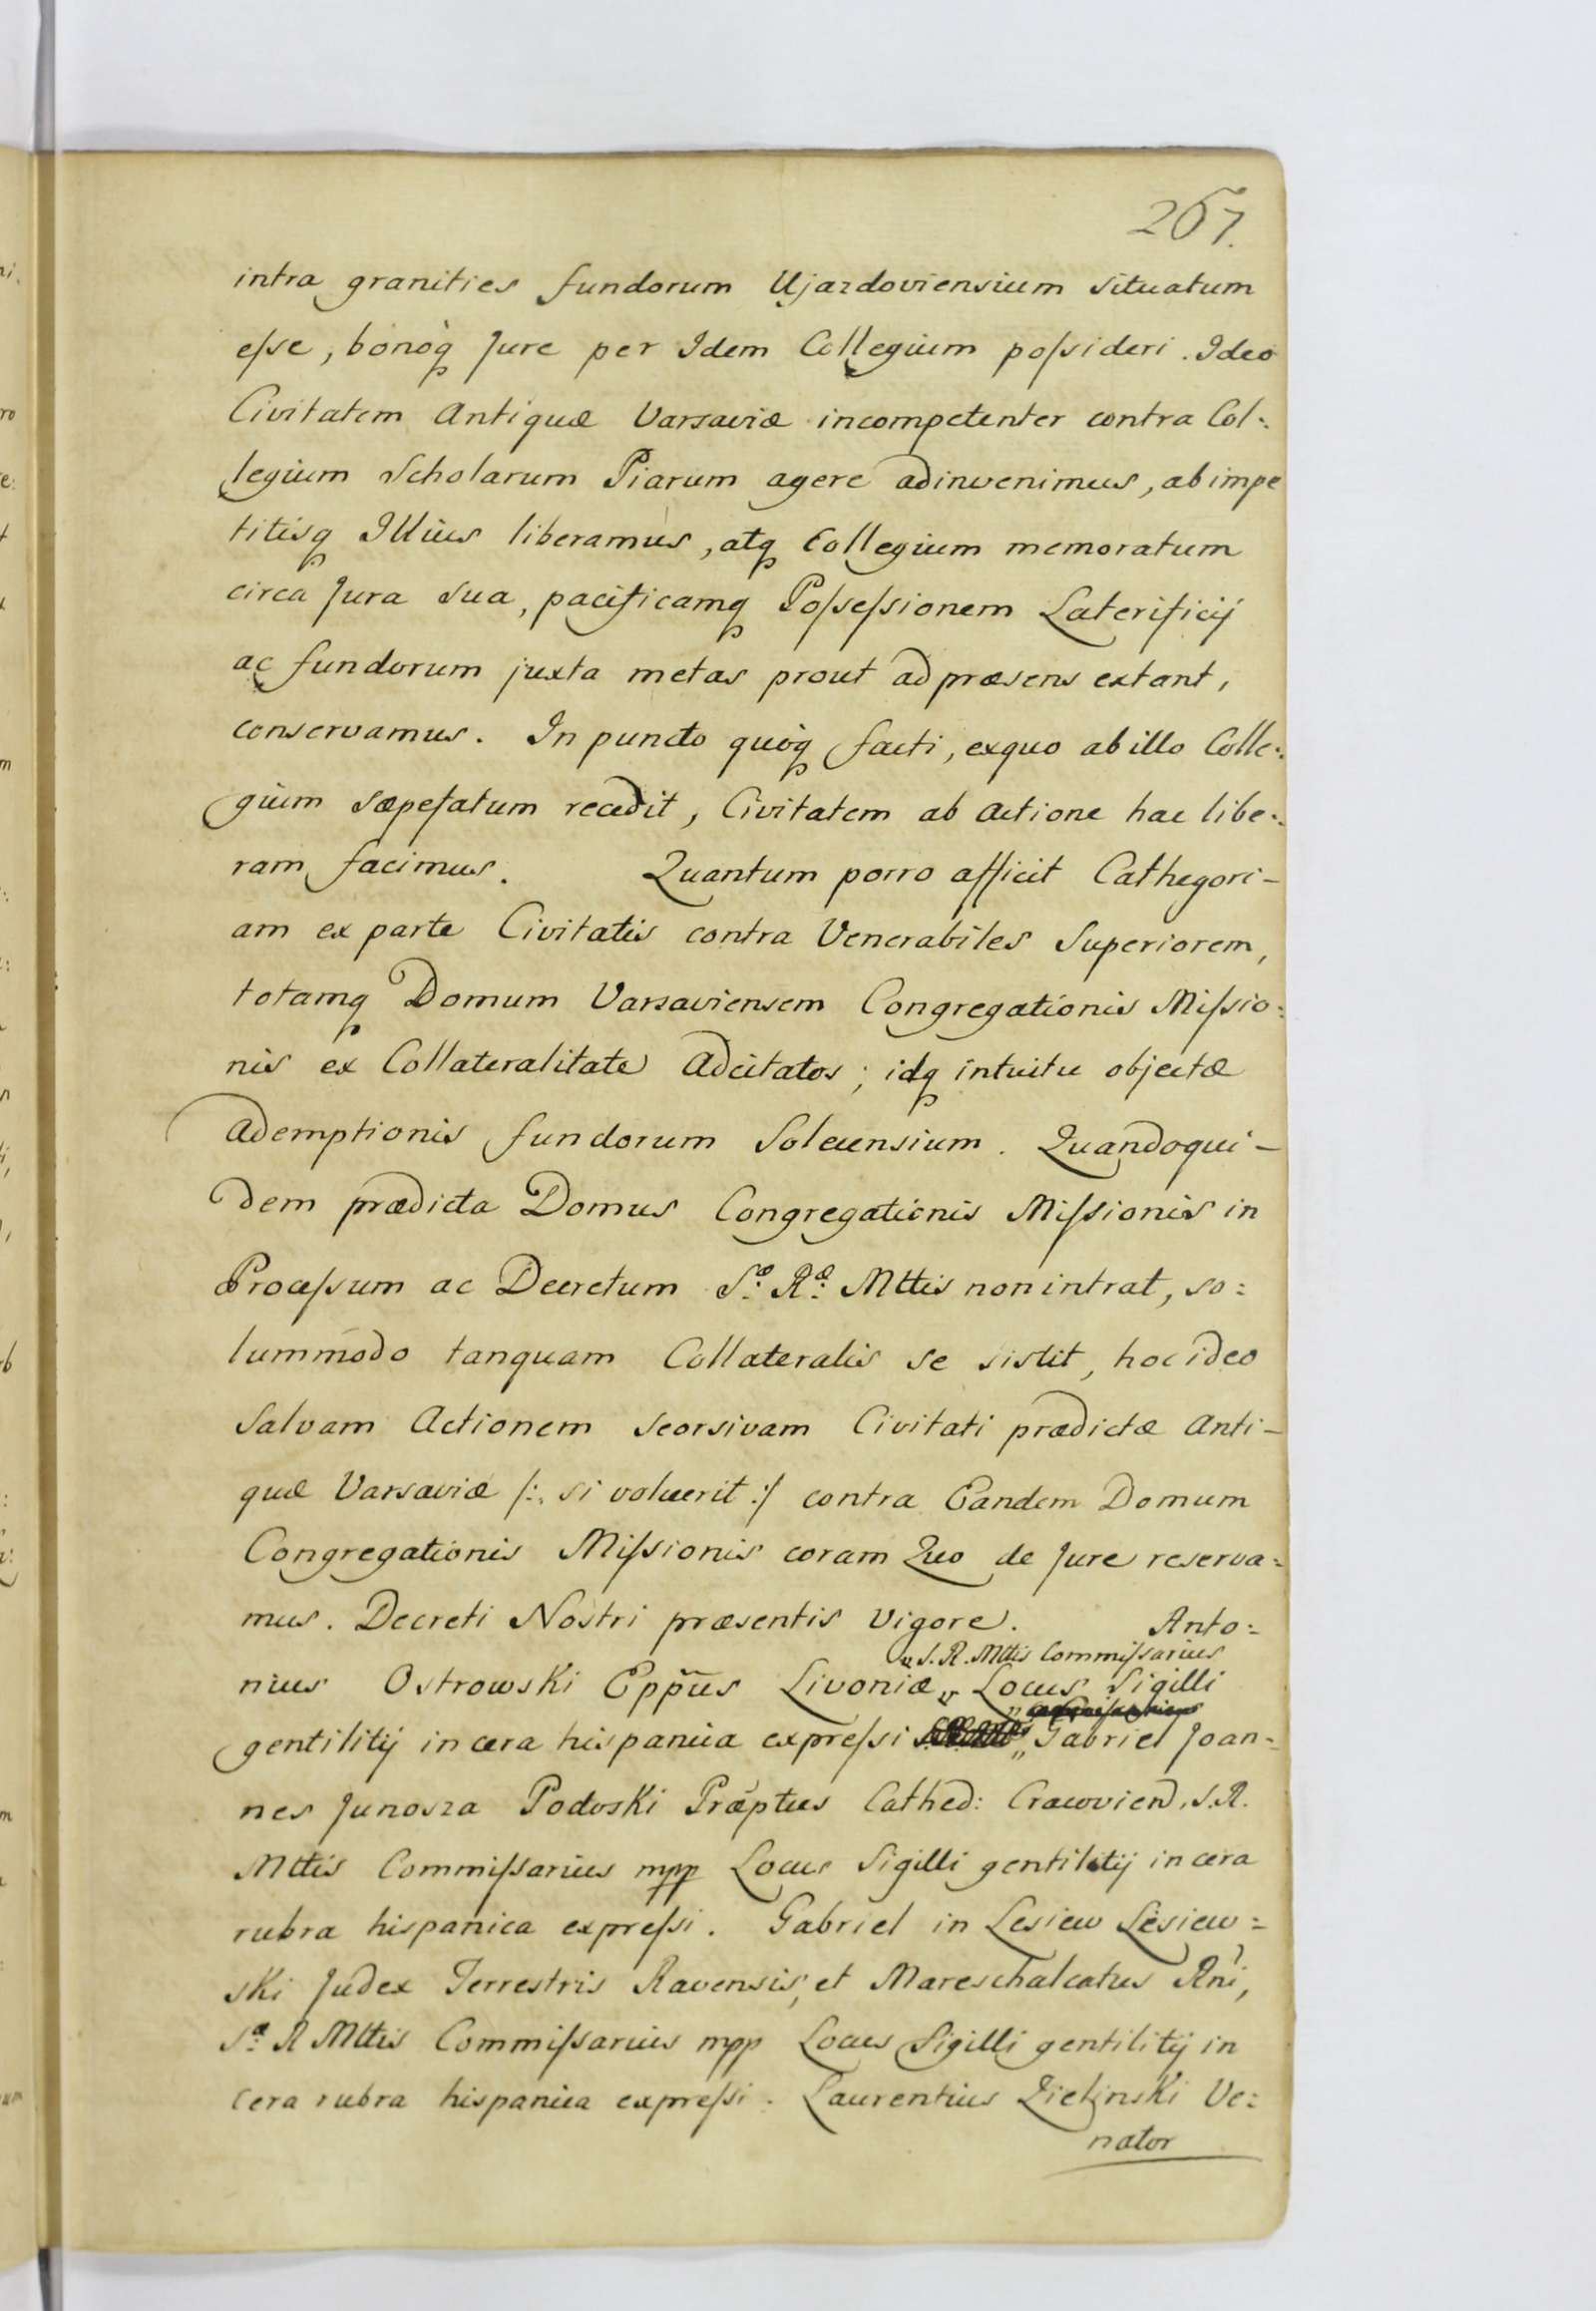 267.
intra granities fundorum Ujazdoviensium situatum
eſse, bonoq́ Jure per Idem Collegium poſsideri. Ideo
Civitatem Antiquæ Varsaviæ incompetenter contra Col:
legium Scholarum Piarum agere adinvenimus, ab impe
titisq Illius liberamus, atq Collegium memoratum
circa Jura sua, pacificamq Poſseſsionem Laterificij
ac fundorum juxta metas prout ad præsens extant,
conservamus. In puncto quoq́ facti, exquo ab illo Colle:
gium sæpefatum recedit, Civitatem ab actione hac libe:
ram facimus. Quantum porro afficit Cathegori-
am ex parte Civitatis contra Venerabiles Superiorem,
totamq Domum Varsaviensem Congregationis Miſsio:
nis ex Collateralitate Adcitatos; idq intuitu objectæ
Ademptionis fundorum Solecensium. Quandoqui-
dem prædicta Domus Congregationis Miſsionis in
Proceſsum ac Decretum Sæ: Ræ: Mttis non intrat, so:
lummodo tanquam Collateralis se sistit, hoc ideo
Salvam Actionem seorsivam Civitati prædictæ Anti-
quæ Varsaviæ /: si voluerit :/ contra Eandem Domum
Congregationis Miſsionis coram Quo de Jure reserva:
mus. Decreti Nostri præsentis vigore. Anto:
„ S. R. Mttis Commiſsarius
nius Ostrowski Epp̃us Livoniæ „ Locus Sigilli
gentilitij in cera hispanica expreſsi „ Gabriel Joan:
nes Junosza Podoski Præptus Cathed: Cracovien. S.R.
Mttis Commiſsarius mpp Locus Sigilli gentilitij in cera
rubra hispanica expreſsi. Gabriel in Lesiew Lesiew:
ski Judex Terrestris Ravensis, et Mareschalcatus Rni,
Sæ: R Mttis Commiſsarius mpp Locus Sigilli gentilitij in
cera rubra hispanica expreſsi. Laurentius Zielinski Ve:
nator